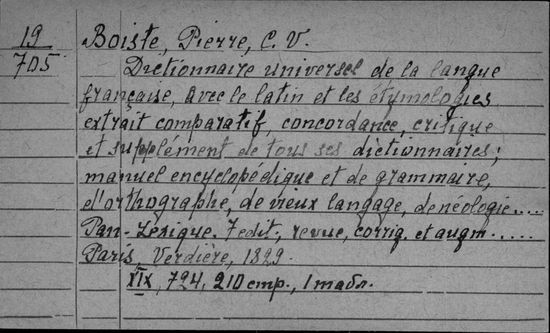 19
705
Boiste, Pierre, C. V.
Dictionnaire universel de la langue
française, avec le latin et les étymologies
extrait comparatif, concordance, critique
et supplément de tous ses dictionnaires;
manuel encyclopédique et de grammaire,
d'orthographe, de vieux langage, de néologie.....
Pan-Lexique. 7 edit.; revue, corrig. et augm.....
Paris, Verdière, 1829.
XIX, 724, 210 стр., 1 табл.